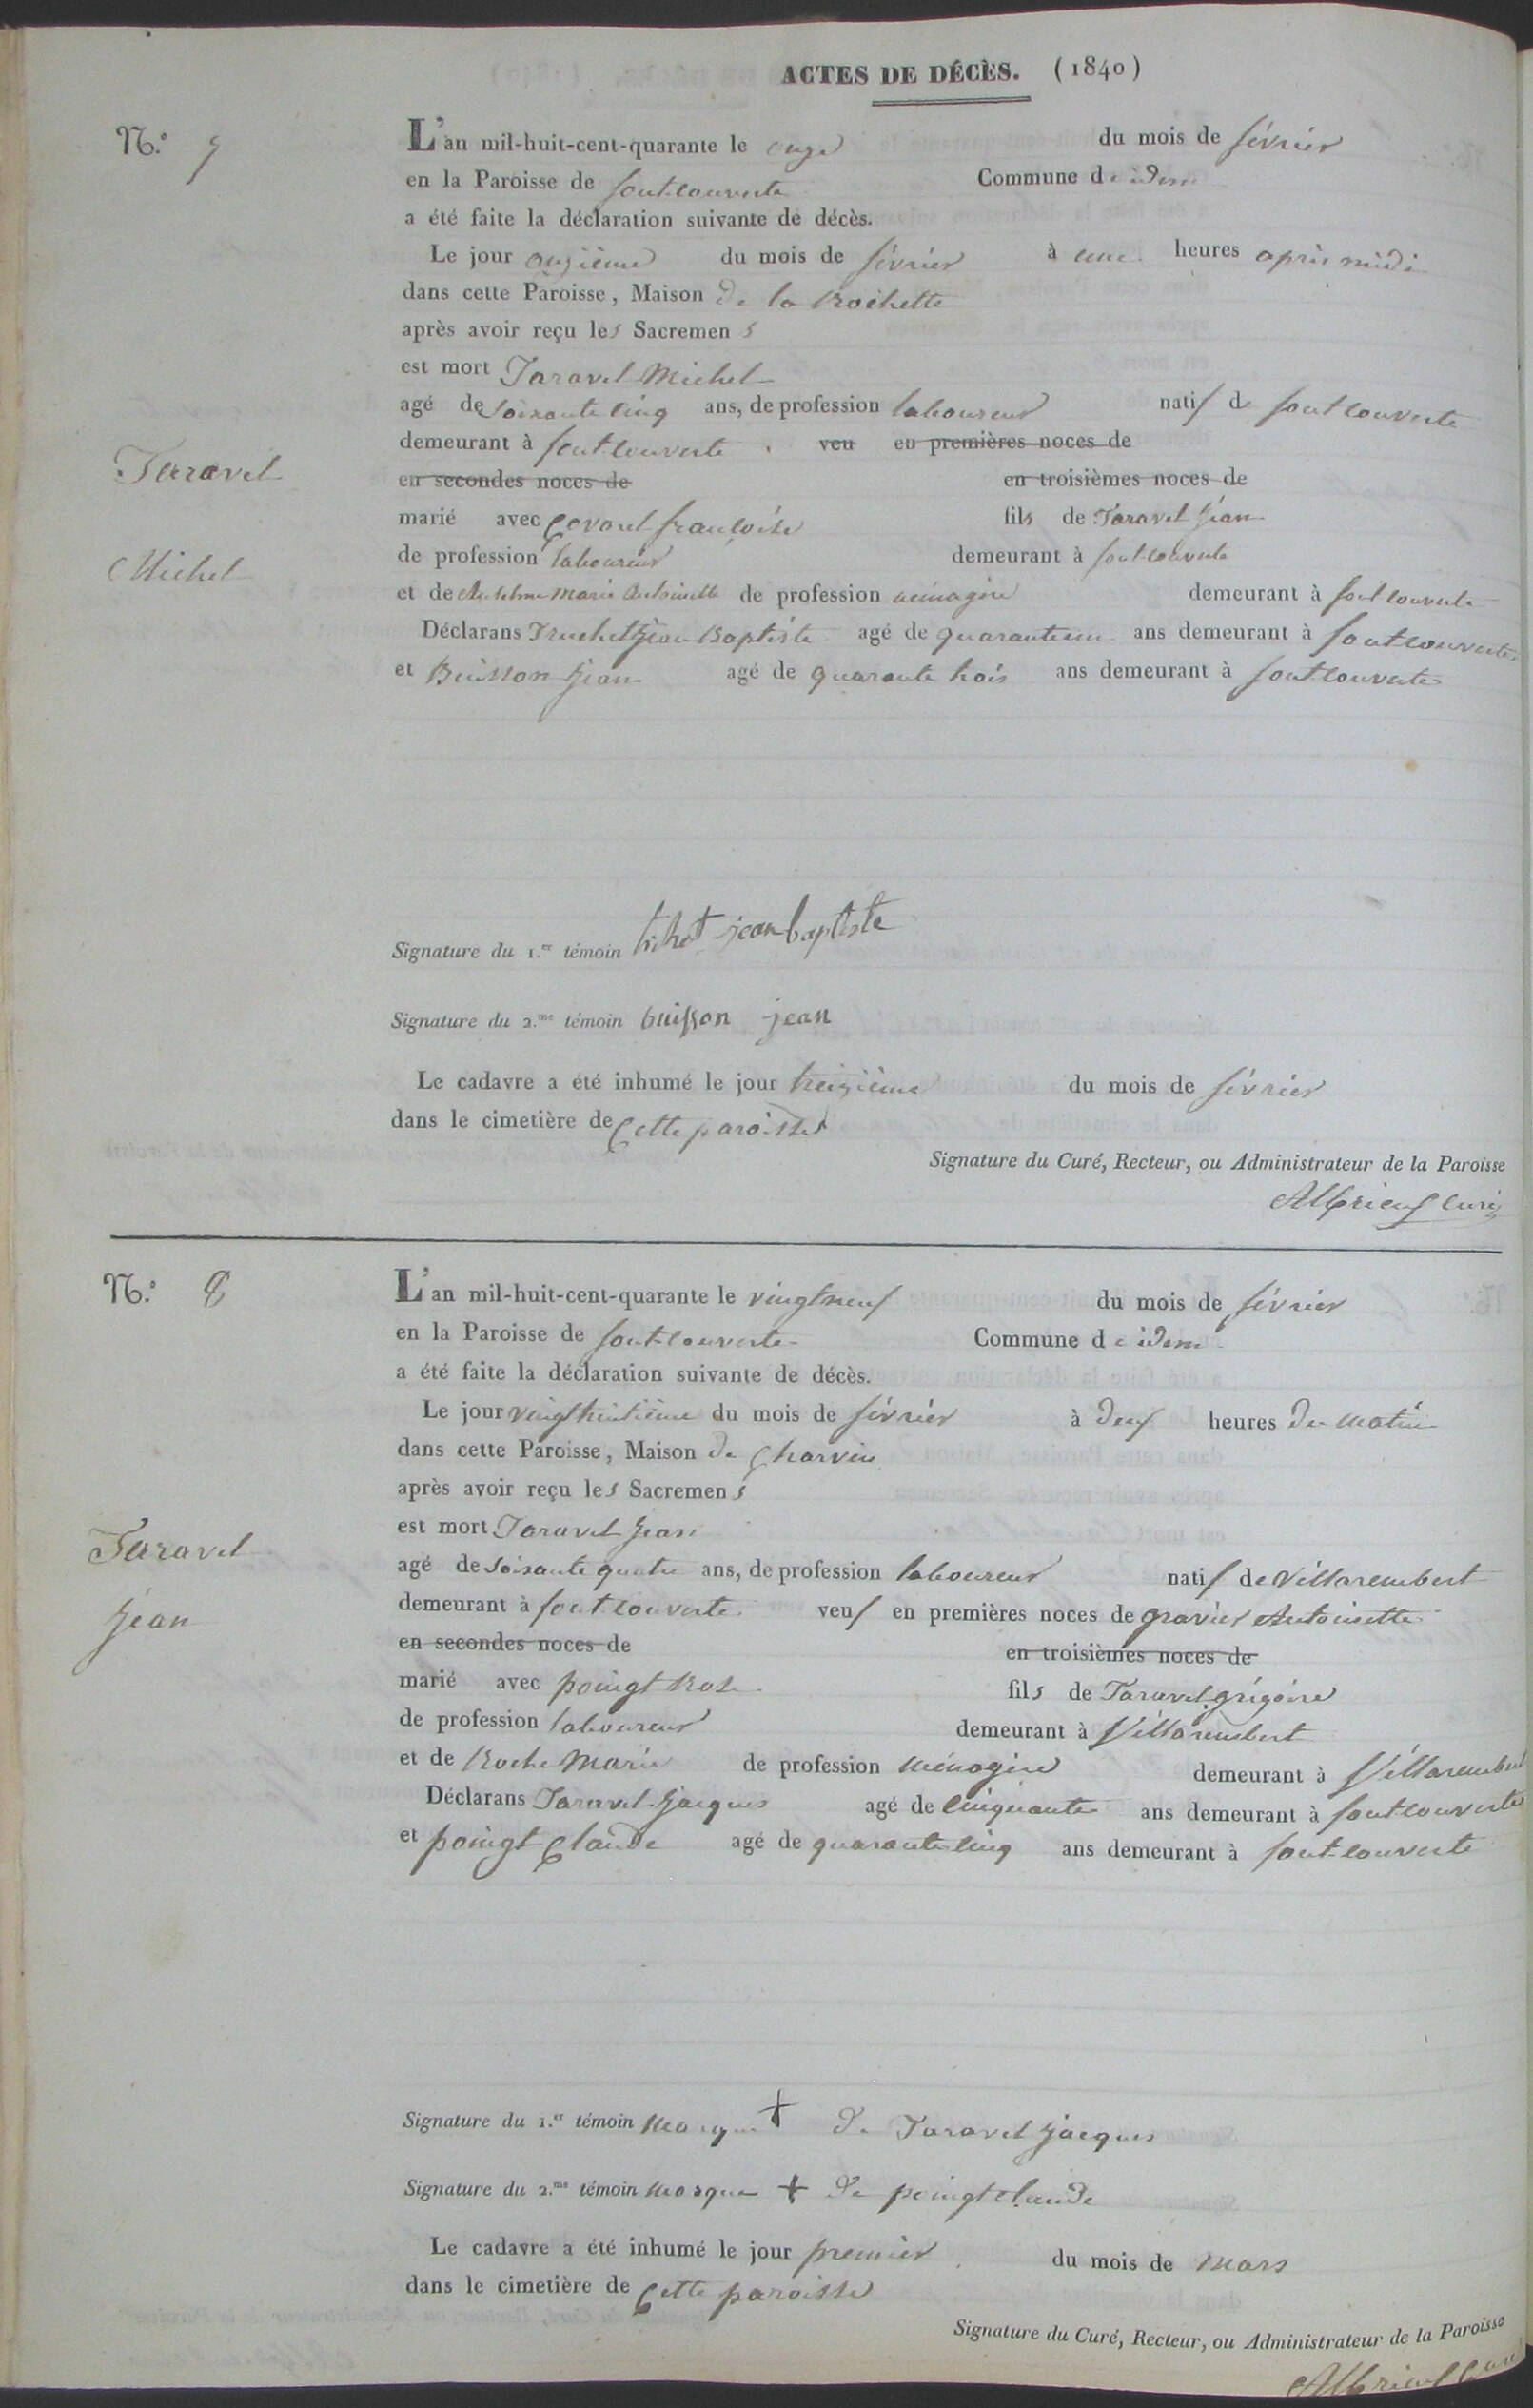 ACTES DE DÉCÈS. (1840)
N.º 7
L'an mil-huit-cent-quarante le onze du mois de février
en la Paroisse de fontcouverte Commune de idem
a été faite la déclaration suivante de décès.
Le jour onzième du mois de février à une heures après midi
dans cette Paroisse, Maison de la Rochette
après avoir reçu les Sacremens
est mort Taravel Michel
agé de soixante cinq ans, de profession laboureur natif de fontcouverte
Taravel
demeurant à fontcouverte. veu en premières noces de
en secondes noces de en troisièmes noces de
marié avec Covarel françoise fils de Taravel Jean
Michel
de profession laboureur demeurant à fontcouverte
et de Anselme Marie Antoinette de profession ménagère demeurant à fontcouverte
Déclarans Truchet Jean Baptiste agé de quarante un ans demeurant à fontcouverte
et Buisson Jean agé de quarante trois ans demeurant à fontcouverte
Signature du 1.er témoin jean baptiste
Signature du 2.me témoin buisson jean
Le cadavre a été inhumé le jour treizième du mois de février
dans le cimetière de cette paroisse
Signature du Curé, Recteur, ou Administrateur de la Paroisse
Albrieux curé
N.º 8
L'an mil-huit-cent-quarante le vingtneuf du mois de février
en la Paroisse de fontcouverte Commune de idem
a été faite la déclaration suivante de décès.
Le jour vingthuitième du mois de février à deux heures du matin
dans cette Paroisse, Maison de Charvin
après avoir reçu les Sacremens
est mort Taravel Jean
Taravel
Jean
agé de soixante quatre ans, de profession laboureur natif de villarembert
demeurant à fontcouverte veuf en premières noces de gravier Antoinette
en secondes noces de en troisièmes noces de
marié avec poingt Rose fils de Taravel grégoire
de profession laboureur demeurant à Villarembert
et de Roche Marie de profession ménagère demeurant à Villarembert
Déclarans Taravel Jacques agé de cinquante ans demeurant à fontcouverte
et poingt Claude agé de quarante cinq ans demeurant à fontcouverte
Signature du 1.er témoin marque + de Taravel Jacques
Signature du 2.me témoin marque + de poingt claude
Le cadavre a été inhumé le jour premier du mois de mars
dans le cimetière de cette paroisse
Signature du Curé, Recteur, ou Administrateur de la Paroisse
Albrieux curé